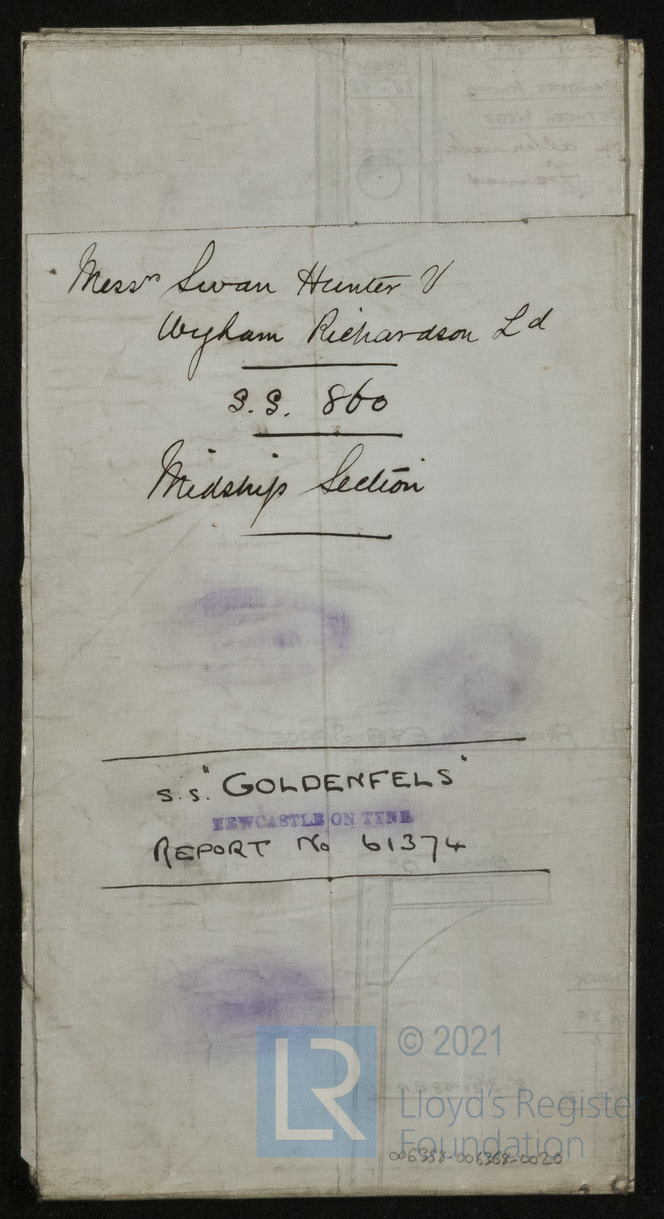 Messrs Swan Hunter &
Wigham Richardson Ld
S.S. 860
Midship Section
S.S. "GOLDENFELS"
NEWCASTLE ON TYNE
REPORT No 61374
LR
© 2021
Lloyd's Register
Foundation
006358-006368-0020